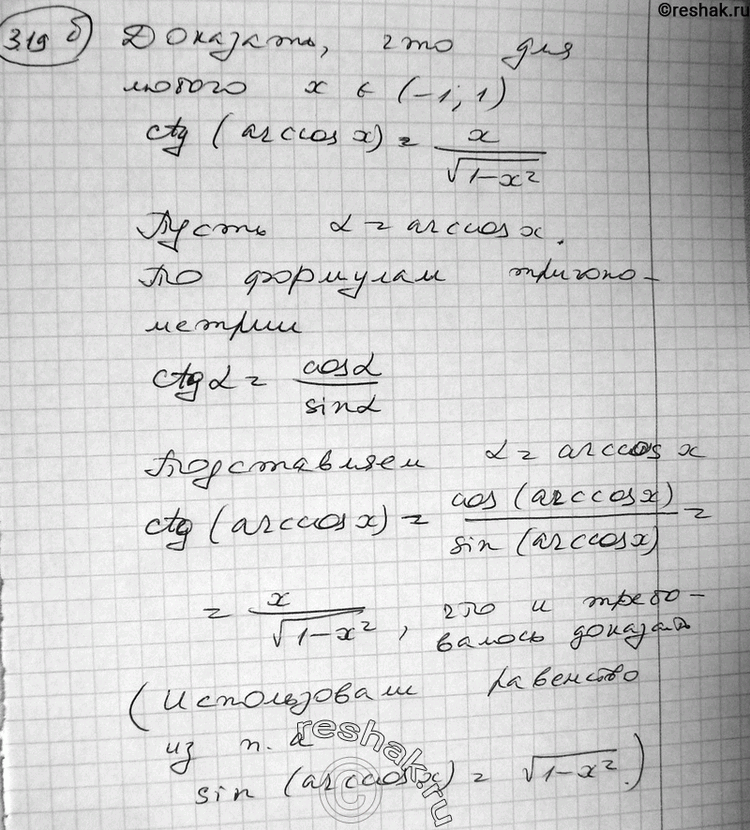 ©reshak.ru
319 б) Доказать, что для
любого x ∈ (-1; 1)
ctg (arccos x) = x / √(1-x²)
Пусть α = arccos x.
По формулам тригоно-
метрии
ctg α = cos α / sin α
Подставляем α = arccos x
ctg (arccos x) = cos (arccos x) / sin (arccos x) =
= x / √(1-x²), что и требо-
валось доказать
(Использовали равенство
из п. а
sin (arccos x) = √(1-x²).)
reshak.ru
©